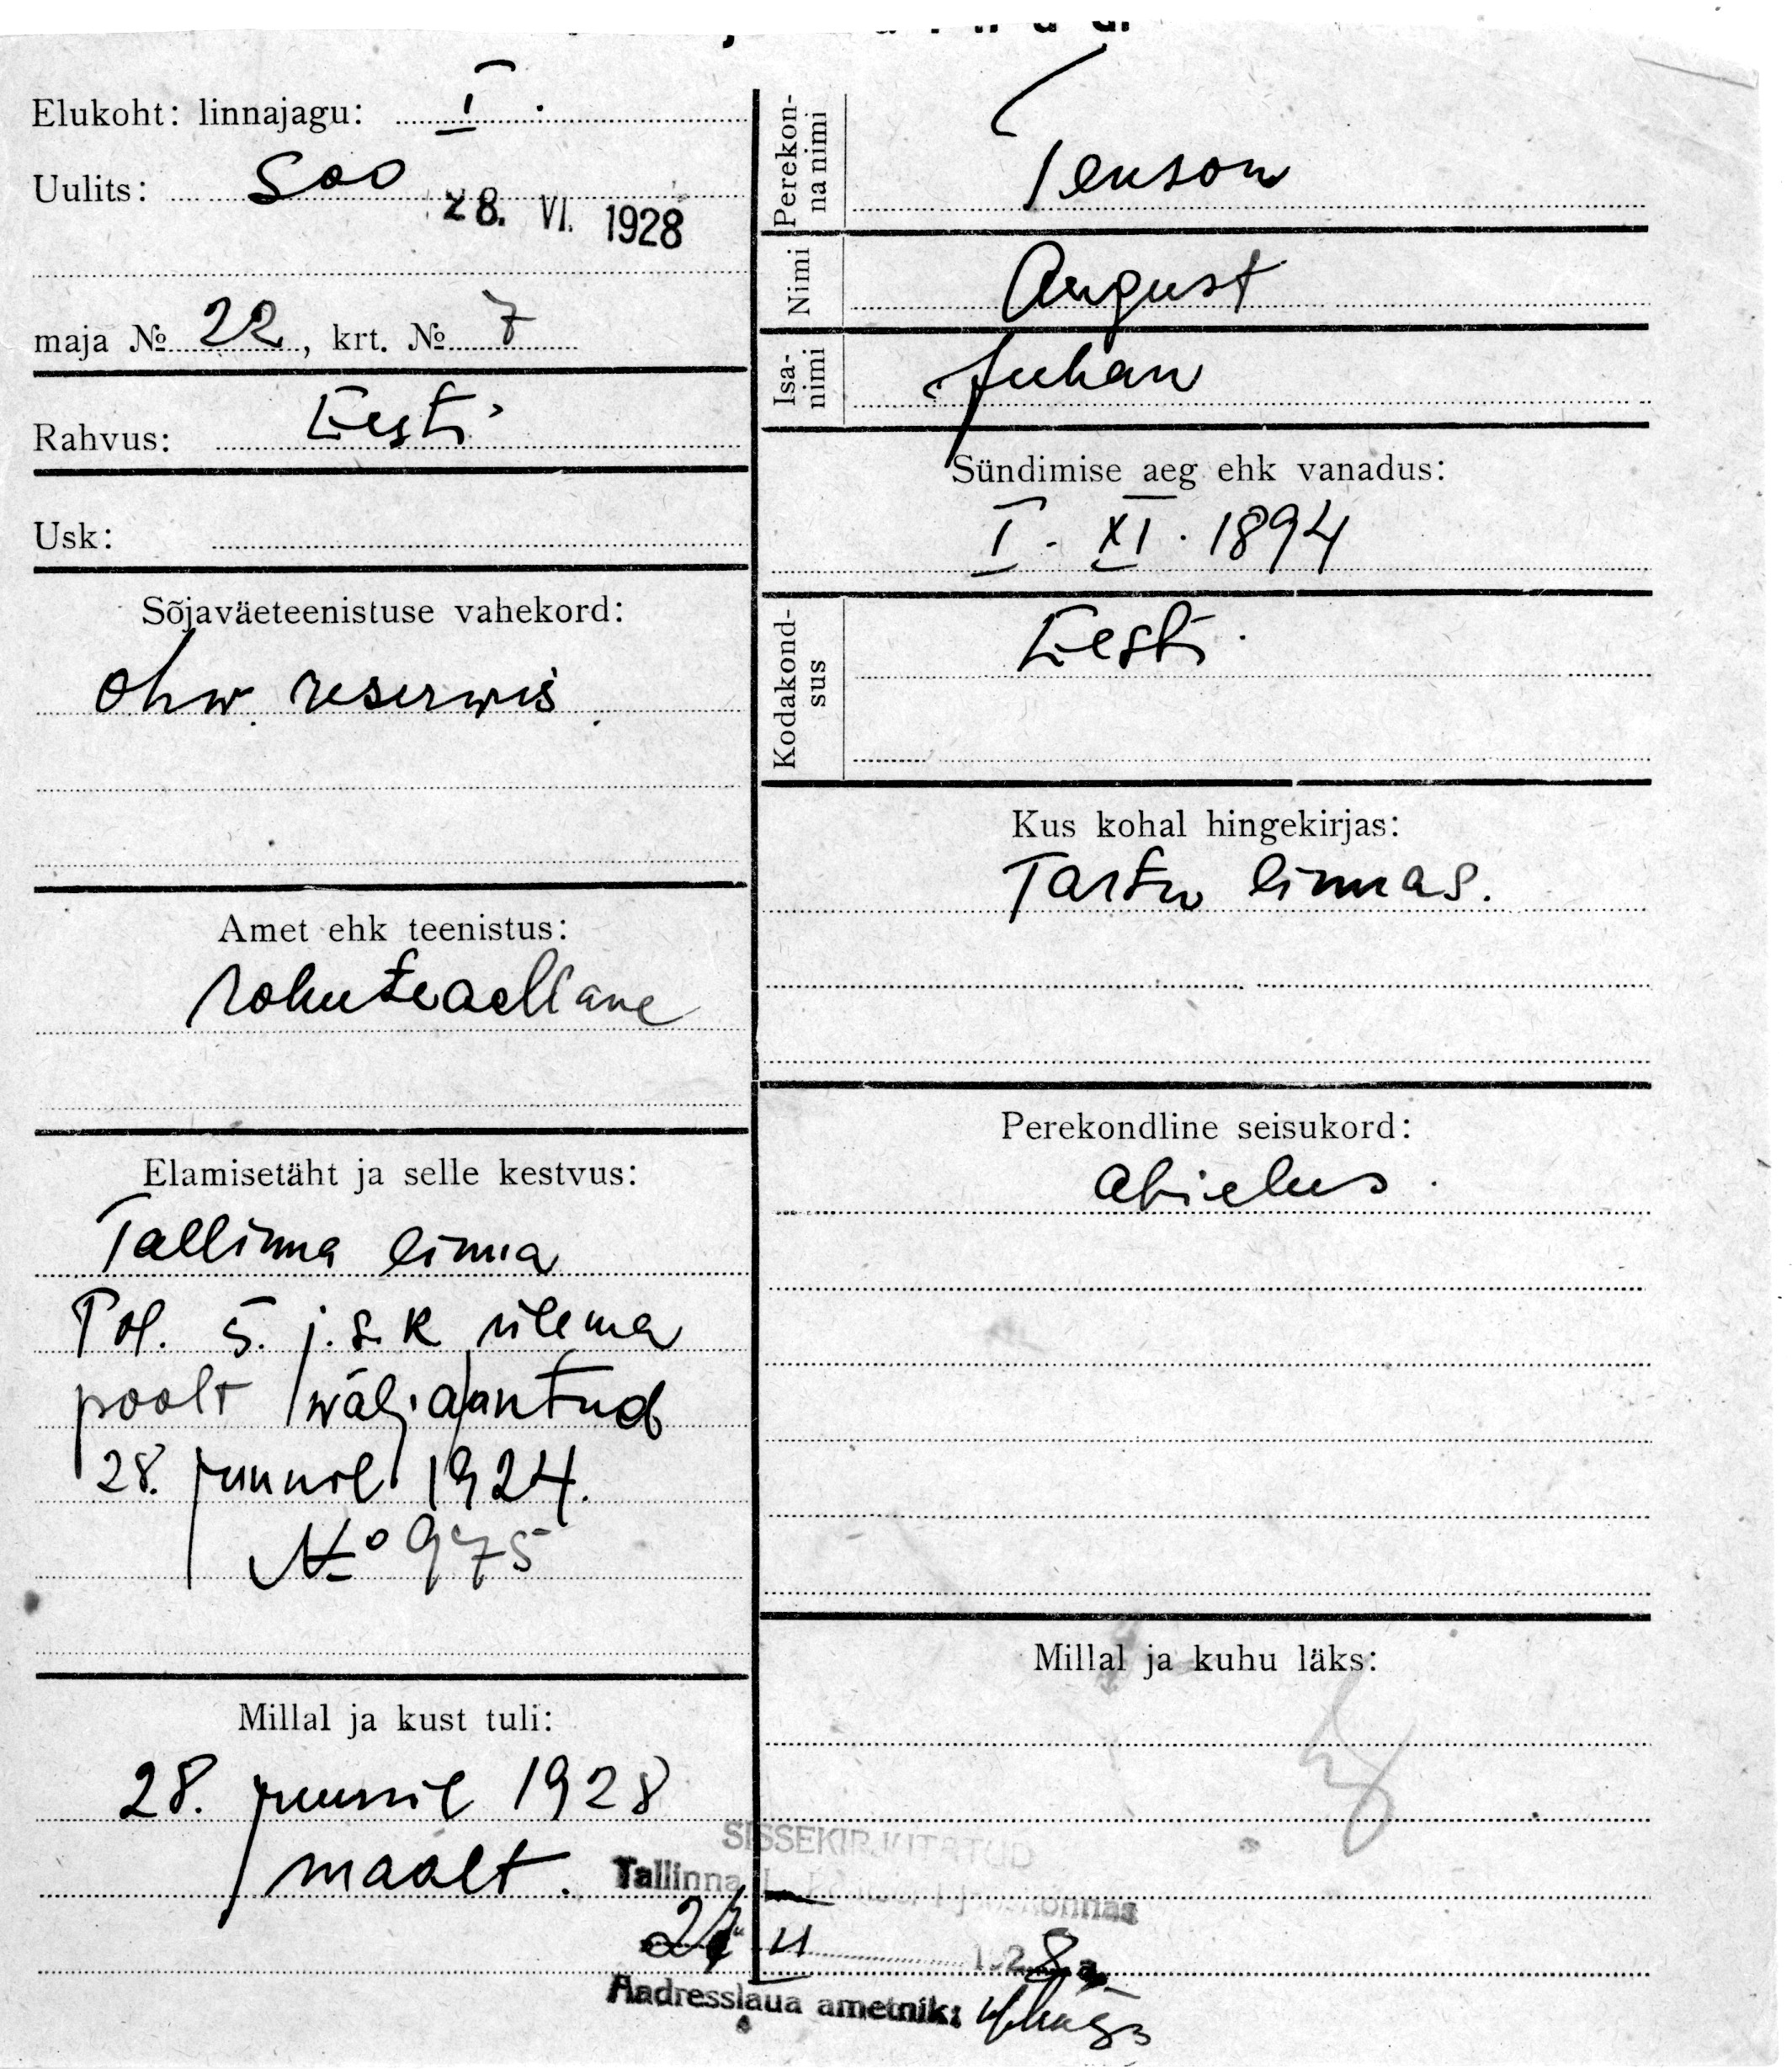 Elukoht: linnajagu: I.
Uulits: Soo
28. VI. 1928
maja № 22, krt. № 7
Rahvus: Eesti
Usk:
Sõjaväeteenistuse vahekord:
ohw. reserwis
Amet ehk teenistus:
rohuteadlane
Elamisetäht ja selle kestvus:
Tallinna linna
Pol. 5. j.s.k ülema
poolt wäljaantud
28. juunil 1924.
№ 975
Millal ja kust tuli:
28. juunil 1928
maalt.
Perekonna nimi
Tenson
Nimi
August
Isanimi
Juhan
Sündimise aeg ehk vanadus:
I. XI. 1894
Kodakondsus
Eesti.
Kus kohal hingekirjas:
Tartu linnas.
Perekondline seisukord:
abielus.
Millal ja kuhu läks:
SISSEKIRJUTATUD
Tallinna
Aadresslaua ametnik: